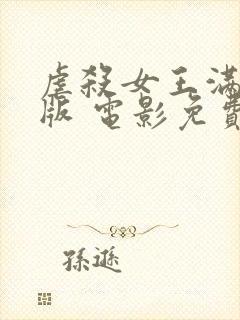 虐殺女王滿
版 電影免費
孫遜